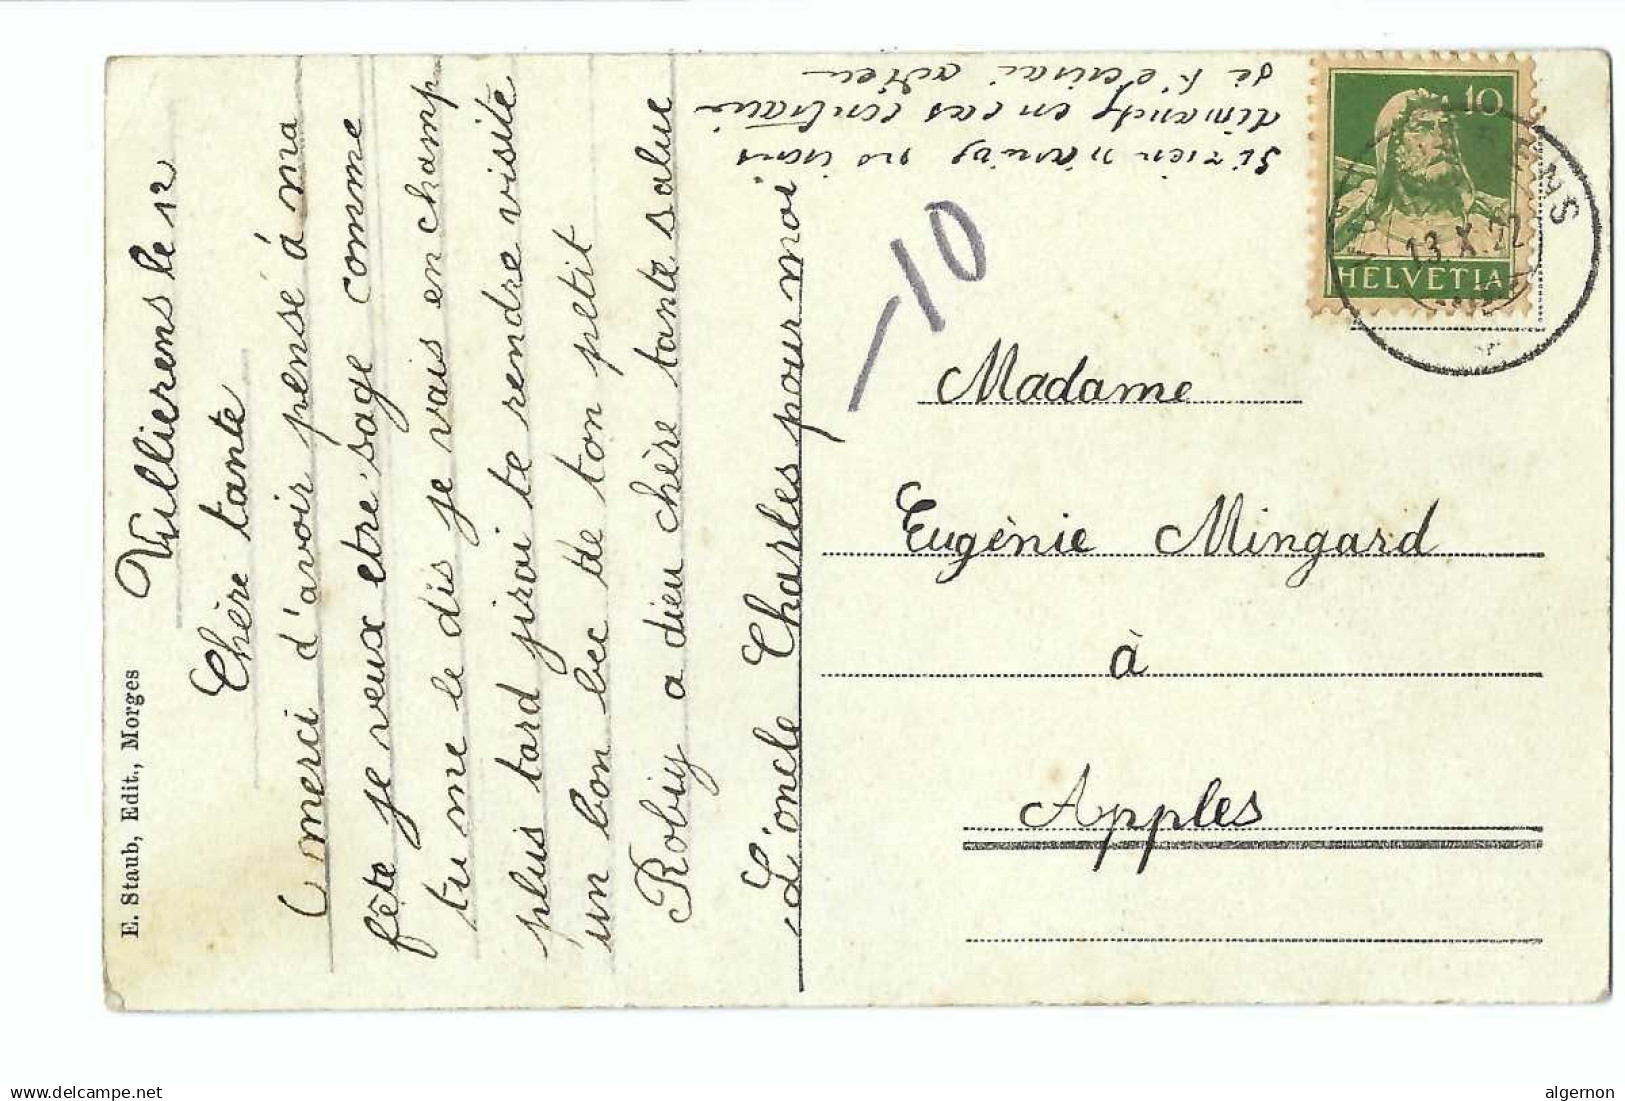 Vullierens le 12
Chère tante
merci d'avoir pensé à ma
fête je veux etre sage comme
tu me le dis je vais en champ
plus tard jirai te rendre visite
un bon bec de ton petit
Robiy a dieu chère tante salue
L'oncle Charles pour moi
Si rien n'arrive irons
dimanche en cas contraire
je t'écrirai adieu
-10
10
HELVETIA
13.X.22
Madame
Eugénie Mingard
à
Apples
E. Staub, Edit., Morges
www.delcampe.net
algernon